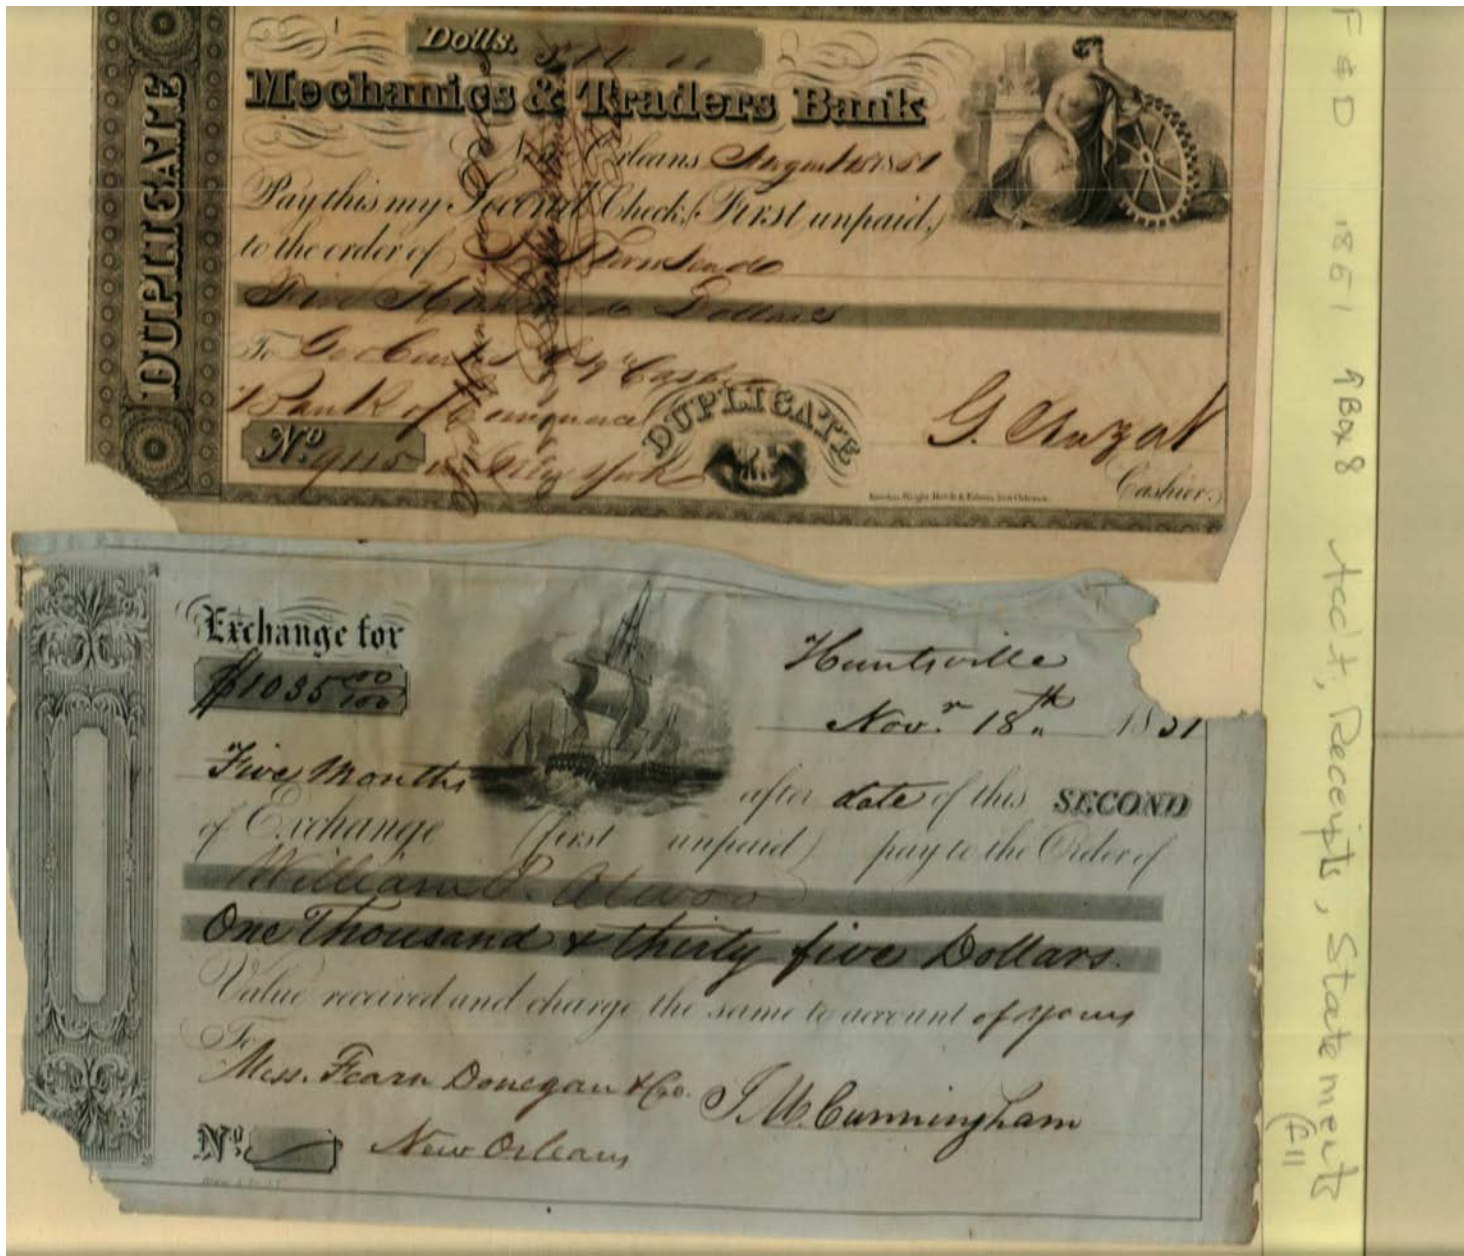 DUPLICATE
Dolls. 500.00
Mechanics & Traders Bank
New Orleans August 1851
Pay this my Second Check (First unpaid)
to the order of
Five Hundred Dollars
To Geo Esqr Cashier
Bank of Commerce
No. 9115 New York
DUPLICATE
Cashier.
Exchange for
$1035 00/100
Huntsville
Novr. 18th 1851
Five Months after date of this SECOND
of Exchange (first unpaid) pay to the Order of
William P. Atwood
One Thousand & thirty five Dollars.
Value received and charge the same to account of yours
To
Mess. Fearn Donegan & Co. J. M. Cunningham
No. New Orleans
F & D 1851 Box 8 Acc't, Receipts, Statements
(f 11